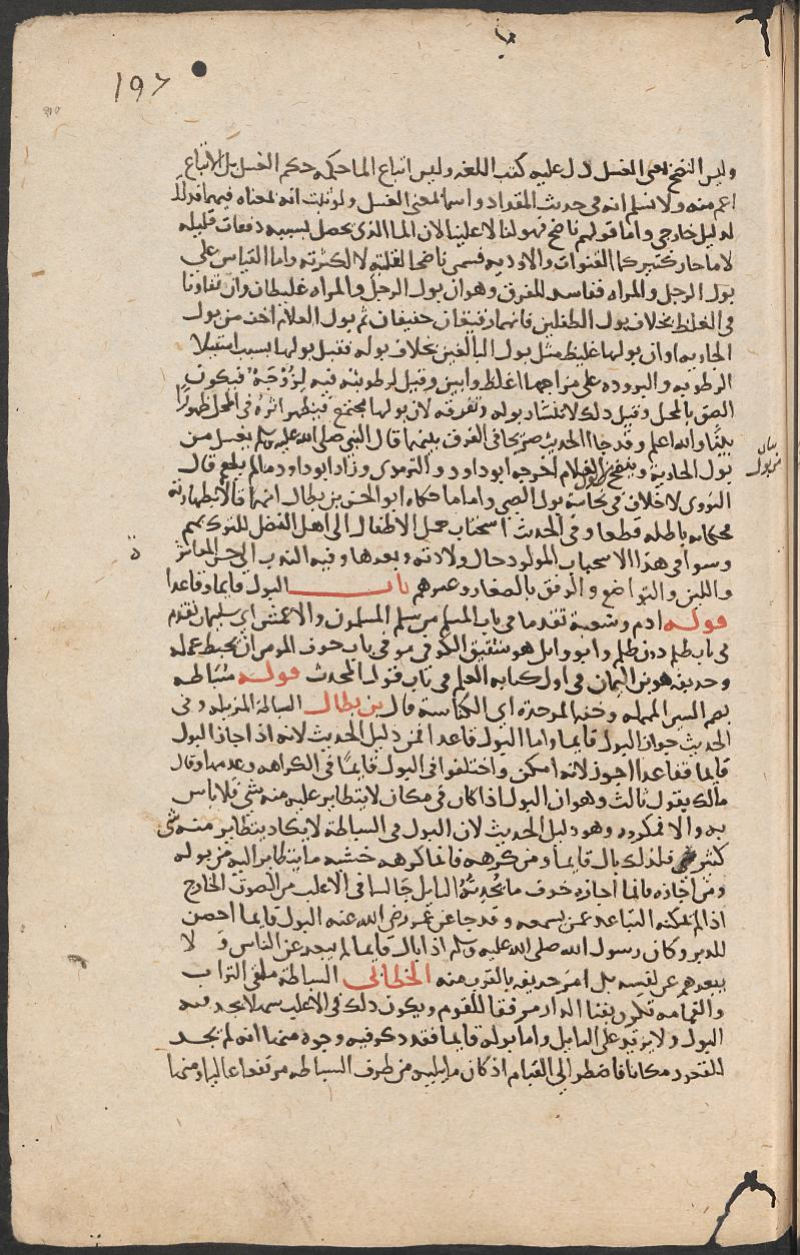 ١٩٢
وليس النضح بمعنى الغسل دل عليه كتب اللغة وليس اتباع الماء حكمه حكم الغسل بل الاتباع
اعم منه ولا نسلم انه في حديث المقداد واسما بمعنى الغسل ولو ثبت انه بمعناه فيهما فذلك
لدليل خارجي واما قولهم ناضح فهو لنا لا علينا لان الما الذي يحصل بسببه دفعات قليله
لا ما جاز كثير كما القنوات والاوديه فسمي ناضحا لقلته لا لكثرته واما القياس على
بول الرجل والمراه ففاسد للفرق وهو ان بول الرجل والمراه غليظان وان تفاوتا
في الغلظ بخلاف بول الطفلين فانهما رقيقان خفيفان ثم بول الغلام اخف من بول
الجاريه اذ ان بولها غليظ مثل بول البالغين بخلاف بوله فقيل بولها بسبب استيلا
الرطوبه والبروده على مزاجها اغلظ وانتن وقيل لرطوبته فيه لزوجة فيكون
الصق بالمحل وقيل ذلك لانتشار بوله وتفرقه لان بولها مجتمع فيظهر اثره في المحل ظهورا
بينا والله اعلم وقد جا الحديث صريحا في الفرق بينهما قال النبي صلى الله عليه وسلم يغسل من
بول الجارية وينضح من بول الغلام اخرجه ابو داود والترمذي وزاد ابو داود ما لم يطعم قال
النووي لا خلاف في نجاسة بول الصبي واما ما حكاه ابو الحسن بن بطال انهما قالا بطهارته
فحكايه باطله قطعا وفي الحديث استحباب حمل الاطفال الى اهل الفضل للتبرك بهم
وسوا في هذا الاستحباب المولود حال ولادته وبعدها وفيه الندب الى حسن المعاشرة
واللين والتواضع والرفق بالصغار وغيرهم باب البول قايما وقاعدا
قوله ادم وشعبة تقدما في باب المسلم من سلم المسلمون والاعمش اي سليمان تقدم
في باب ظلم دون ظلم وابو وايل هو شقيق الكوفي مر في باب خوف المومن ان يحبط عمله
وحذيفه هو ابن اليمان في اول كتاب العلم في باب قول المحدث قوله سباطه
بضم السين المهمله وخفة الموحدة اي الكناسة قال بن بطال السباطة المزبله وفي
الحديث جواز البول قايما واما البول قاعدا فمن دليل الحديث لانه اذا جاز البول
قايما فقاعدا اجوز لانه امكن واختلفوا في البول قايما في الكراهه وعدمها وقال
مالك بقول ثالث وهو ان البول اذا كان في مكان لا يتطاير عليه منه شي فلا باس
به والا فمكروه وهو دليل الحديث لان البول في السباطة لا يكاد يتطاير منه شي
كثير فلذلك بال قايما ومن كرهه فانما كرهه خشيه ما يتطاير اليه من بوله
ومن اجازه فانما اجازه خوف ما يحدثه البايل جالسا في الاغلب من الصوت الخارج
اذا لم يمكنه التباعد عمن يسمعه وقد جا عن عمر رضي الله عنه البول قايما احصن
للدبر وكان رسول الله صلى الله عليه وسلم اذا بال قايما لم يبعد عن الناس ولا
يبعدهم عن نفسه بل امر حذيفه بالقرب منه الخطابي السباطه ملقى التراب
والقمامه تكون بفنا الدار مرفقا للقوم ويكون ذلك في الاغلب سهلا يخد فيه
البول ولا يرتد على البايل واما بوله قايما فقد ذكر فيه وجوه منها انه لم يجد
للقعود مكانا فاضطر الى القيام اذ كان ما يليه من طرف السباطه مرتفعا عاليا ومنها